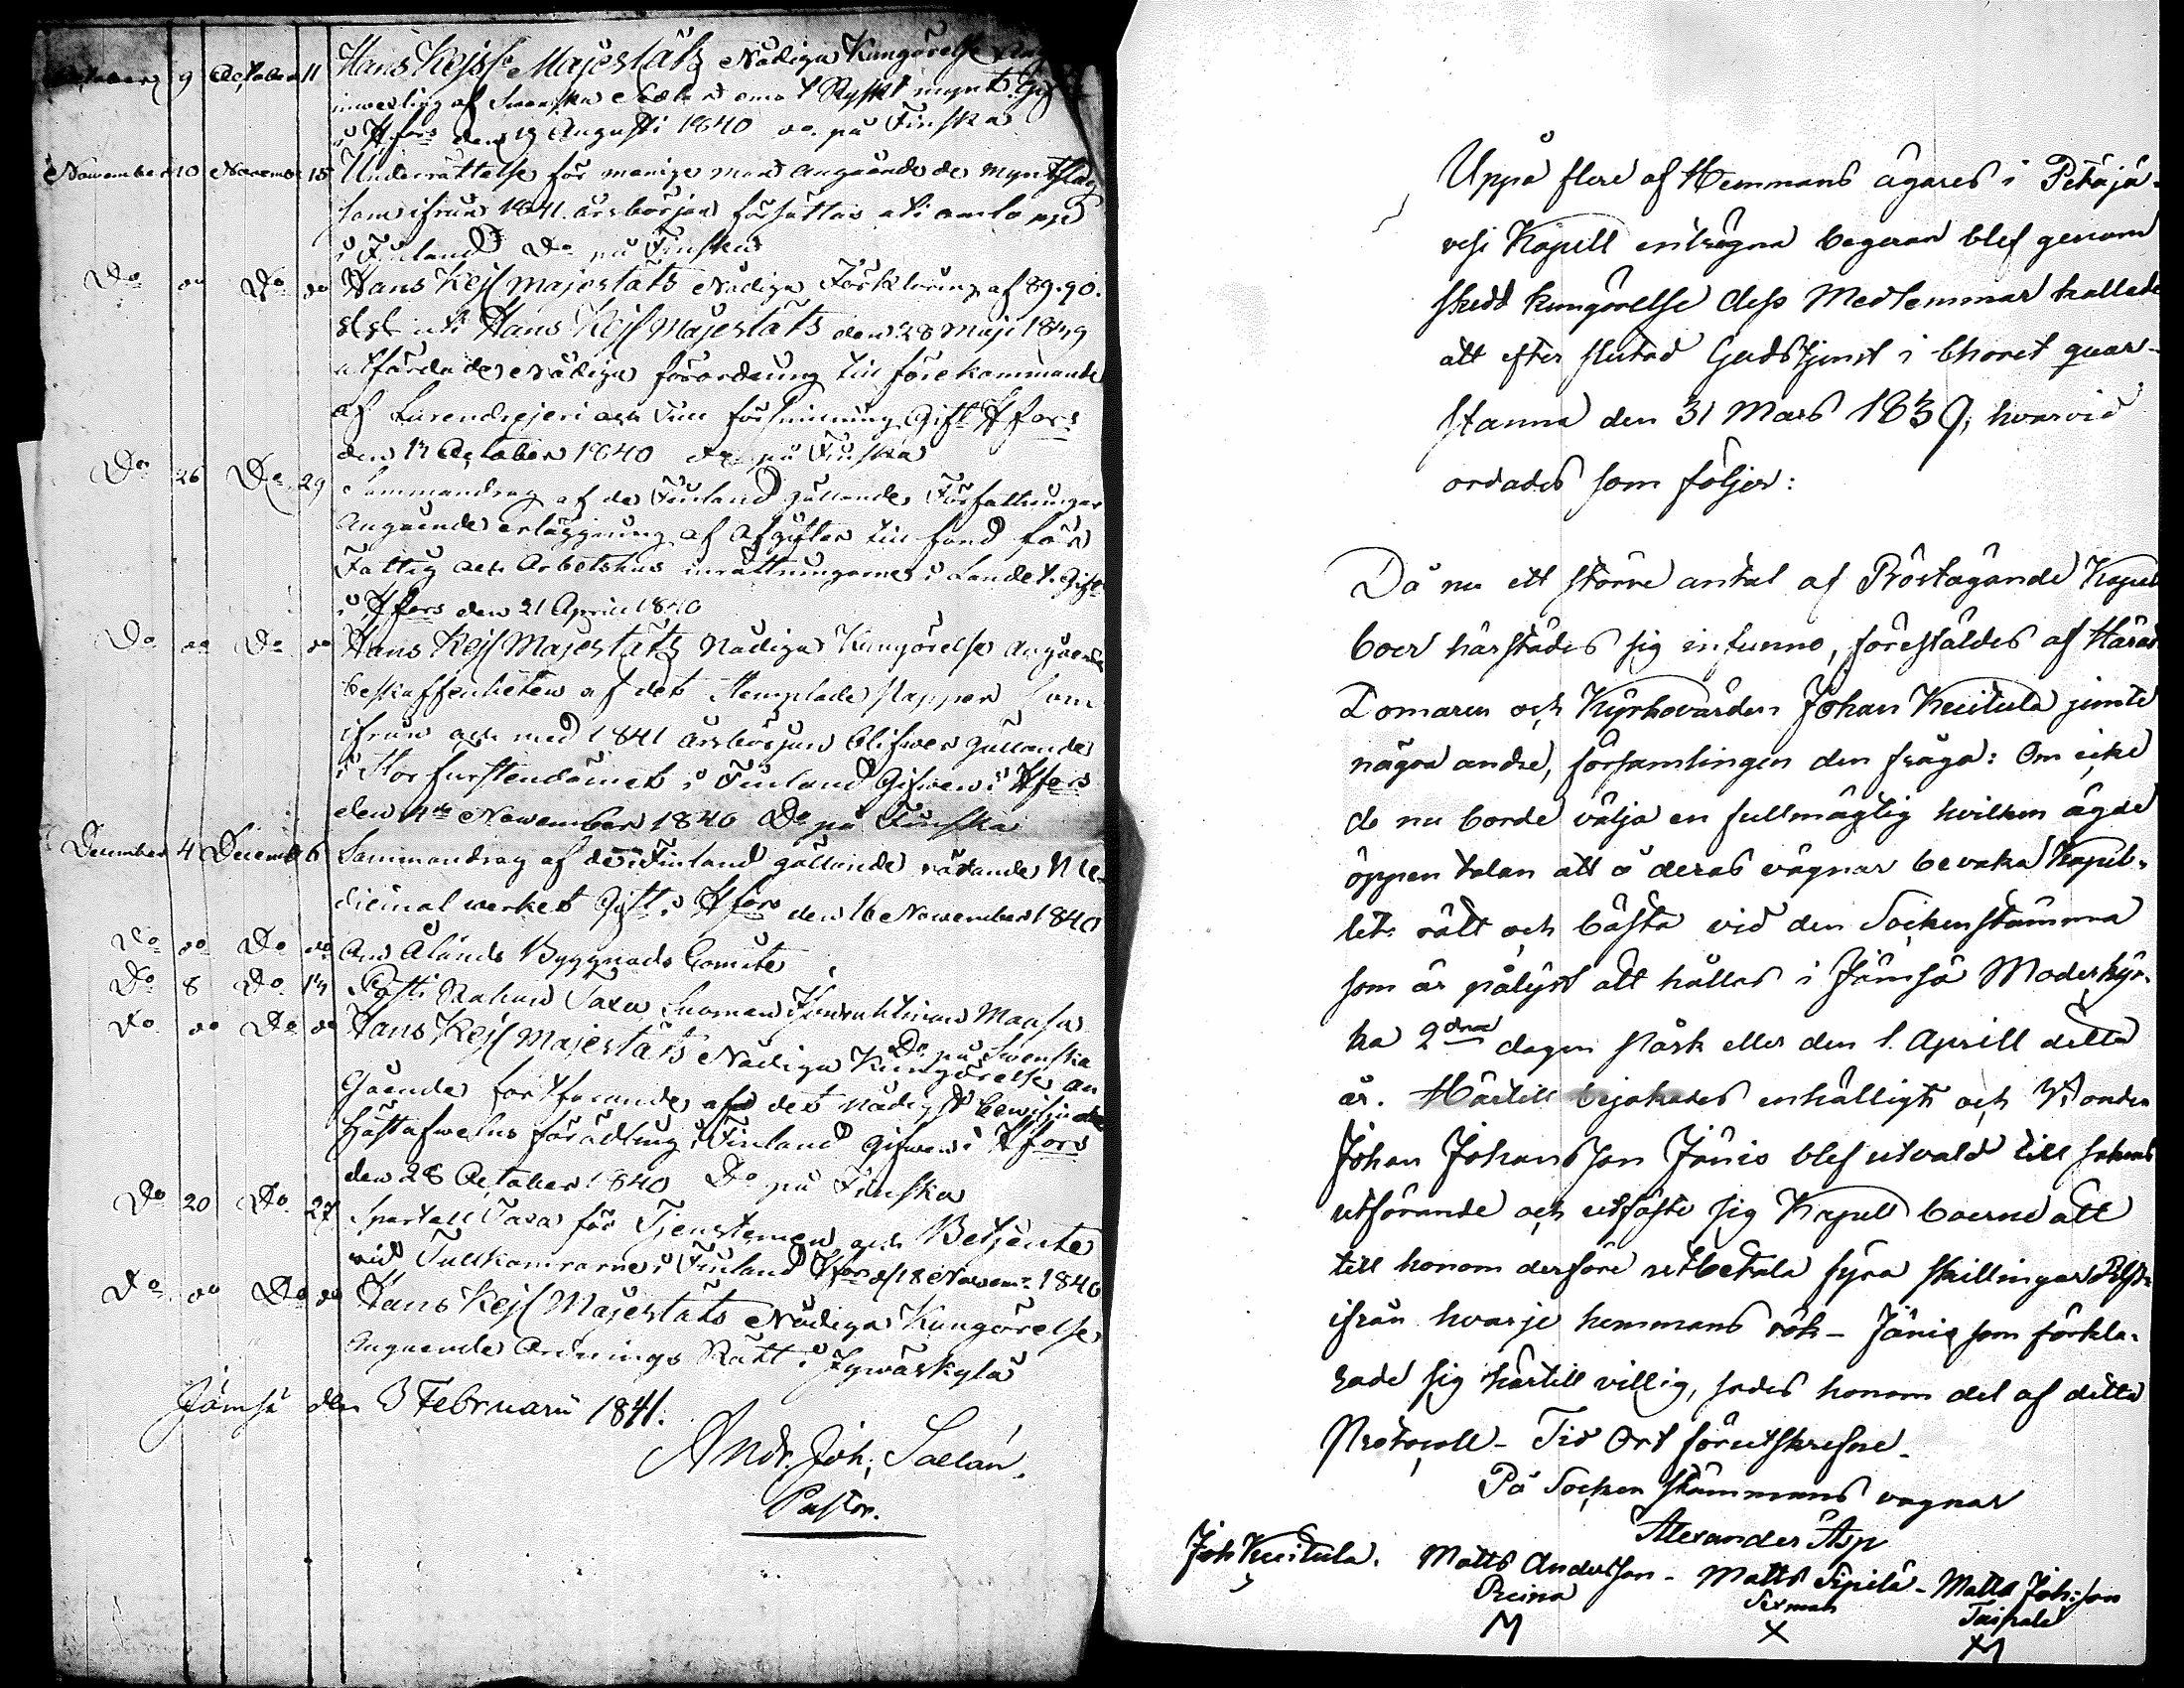 October 9 October 11 Hans Kejs. Majestäts Nådiga Kungörelse
inwexling af Swenska Sedlar emot Ryskt mynt. Gif
i Hfors den 19 Augusti 1840 do på Finska
November 10 Novemb 15 Underrättelse för menige man angående de myntslag
som ifrån 1841 årsbörjan försättas uti omlopp
i Finland Do på Finska
Do do Do do Hans Kejs Majestäts Nådiga Förklaring af 89. 90.
§§ uti Hans Kejs Majestäts den 28 Maji 18
utfärdade Nådiga förordning till förekommande
af Lurendrejeri och Tull försnillning Gift Hfors
den 14 October 1840 do på Finska
Do 26 Do 29 Sammandrag af de Finland gällande Författningar
Angående erläggning af Afgifter till fond för
Fattig och Arbetshus inrättningarne i Landet. Gift
i Hfors den 21 April 1840
Do do Do do Hans Kejs Majestäts Nådiga Kungörelse Angående
beskaffenheten af det Stemplade papper som
ifrån och med 1841 årsbörjan blifwer gällande
i Storfurstendömet Finland Gifwen i Hfors
den 4de November 1840 Do på Finska
December 4 Decemb 6 Sammandrag af de i Finland gällande rörande Me-
dicinal werket Gift i Hfors den 16 November 1840
Do do Do do Om Ålands Byggnads Comite
Do 8 Do 13 Posti Rahan Taxa Suomen Maasa
Do på Swenska
Do do Do do Hans Kejs Majestäts Nådiga Kungörelse an
gående fortfarande af det nådigst bewiljade
Hästafwelns förädling i Finland Gifwen i Hfors
den 28 October 1840 Do på Finska
Do 20 Do 27 Sportell Taxa för Tjenstemen och Betjente
vid Tullkamrarne i Finland Hfors d. 18 Novem. 1840
Do do Do do Hans Kejs Majestäts Nådiga Kungörelse
Angående Ordnings Rätt i Jywäskylä
Jämsä den 3 Februarii 1841.
Andr. Joh. Saelan.
Pastor.
Uppå flere af Hemmans ägares i Petäjä-
vesi Kapell enträgna begäran blef genom
skedd kungörelse dess Medlemmar kallade
att efter slutad Gudstjenst i Choret quar-
stanna den 31 Mars 1839, hvarvid
ordades som följer:
Då nu ett större antal af Röstägande Kapell
boer härstädes sig infunno, föreställdes af Härads
Domaren och Kyrkovärden Johan Kuitula jemte
några andre, församlingen den fråga: Om icke
de nu borde välja en fullmägtig hvilken ägde
öppen talan att å deras vägnar bevaka Kapel-
lets rätt och bästa vid den Sockenstämma
som är pålyst att hållas i Jämsä Moderkyr-
ka 2dra dagen Påsk eller den 1. Aprill detta
år. Härtill bejakades enhälligt och Bonden
Johan Johansson Jänis blef utvald till sakens
utförande och utfäste sig Kapell boerne att
till honom derföre utbetala fyra skillingar Rgs
ifrån hvarje hemmans rök – Jänis som förkla-
rade sig härtill villig, gades honom del af detta
Protocoll – Tid Ort förutskrefne –
På Socken stämmans vägnar
Alexander Asp
Joh Kuitula. Matts Andersson – Matts Sipilä – Matts Joh:son
Reina Sexman Taipale
M X M